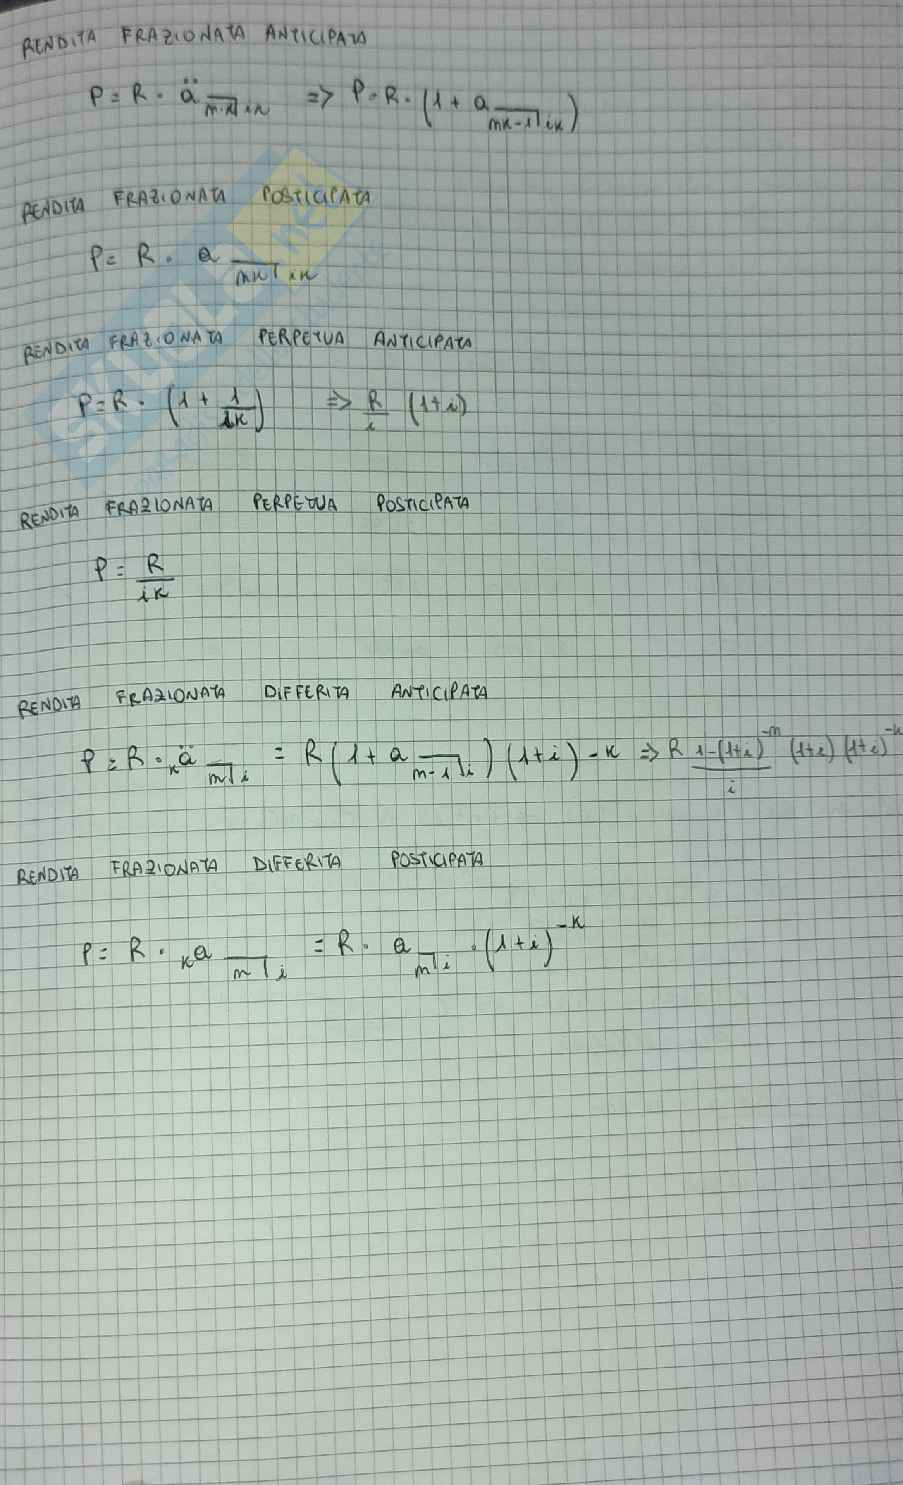 RENDITA FRAZIONATA ANTICIPATA
P = R · ä m·k⌉ik => P = R · (1 + a mk-1⌉ik)
RENDITA FRAZIONATA POSTICIPATA
P = R · a mk⌉ik
RENDITA FRAZIONATA PERPETUA ANTICIPATA
P = R · (1 + 1/ik) => R/i (1+i)
RENDITA FRAZIONATA PERPETUA POSTICIPATA
P = R/ik
RENDITA FRAZIONATA DIFFERITA ANTICIPATA
P = R · kä m⌉i = R (1 + a m-1⌉i) (1+i) - k => R 1-(1+i)^-m/i (1+i) (1+i)^-k
RENDITA FRAZIONATA DIFFERITA POSTICIPATA
P = R · ka m⌉i = R · a m⌉i · (1+i)^-k
SKUOLA.net